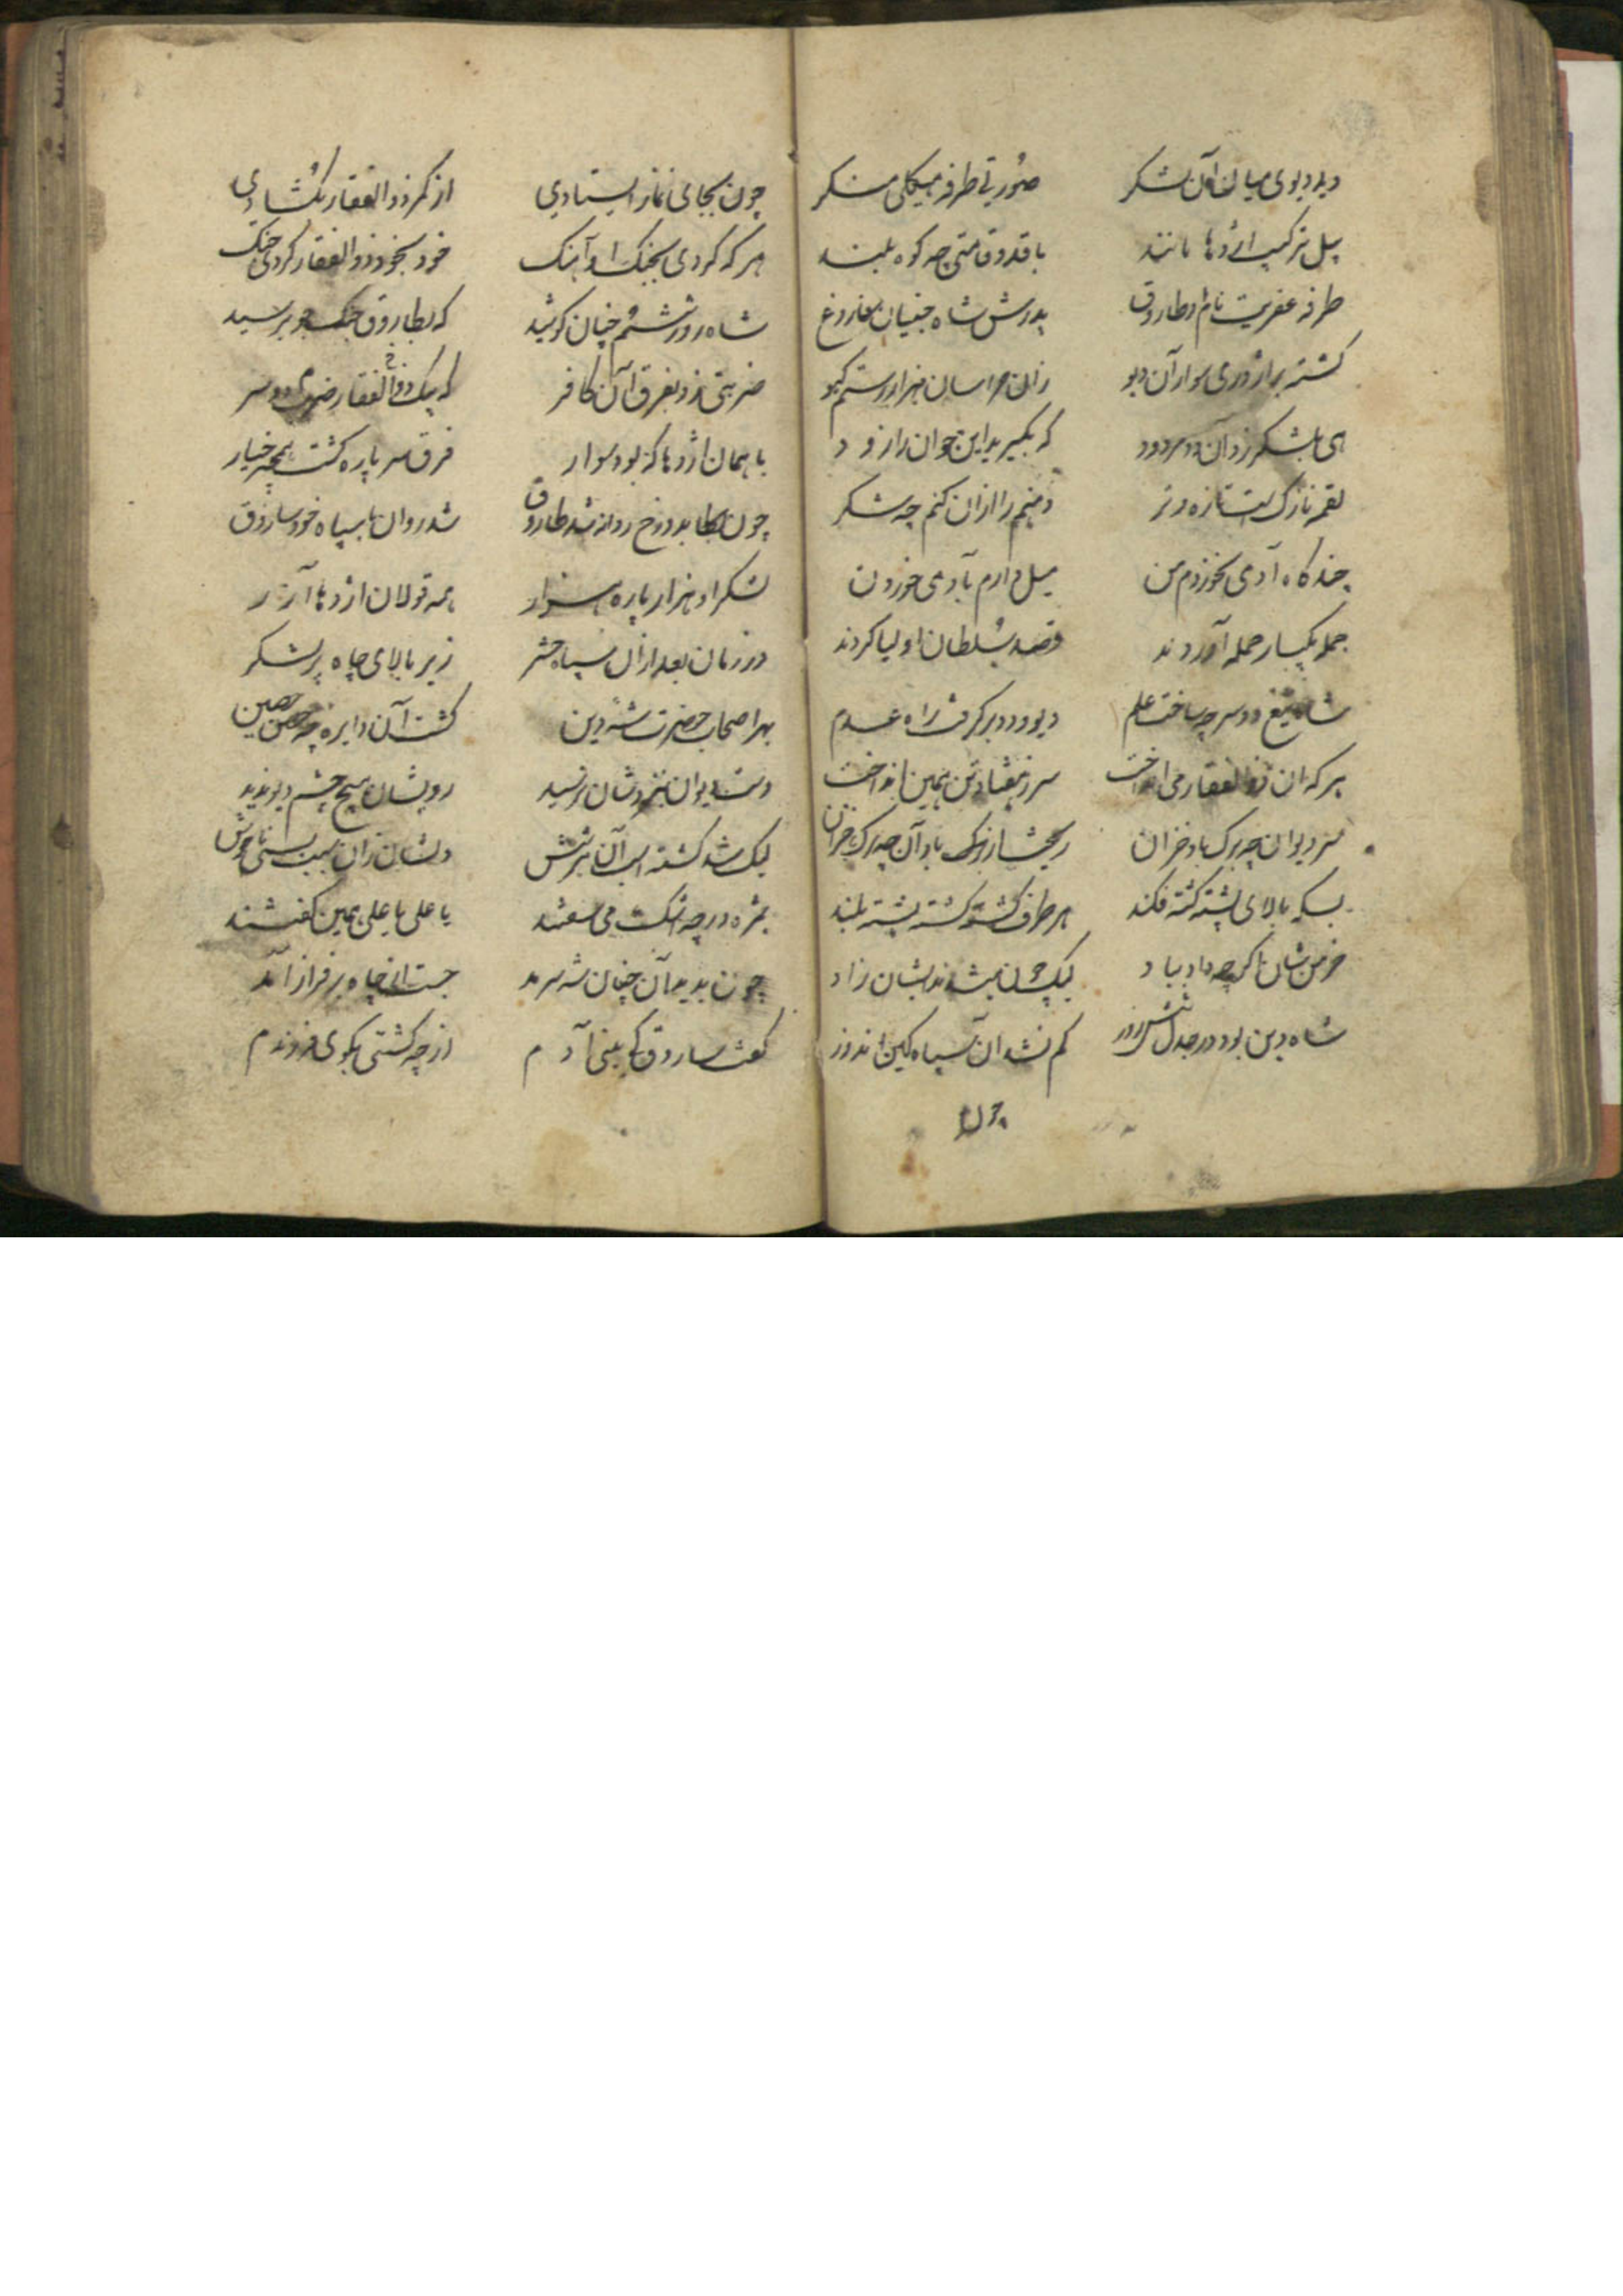 دید دیوی میان آن لشکر صورتی طرفه هیکلی منکر
پیل ترکیب اژدها مانند با قد و قامتی چه کوه بلند
طرفه عفریت نام او طاروق پدرش شاه جنیان
گشته بر اژدری سوار آن دیو زان هراسان هزار رستم گیو
بلشکر زد آن که بگیرید این جوان را زود
لقمه نازک است تازه و تر را ازان کنم چه شکر
چند گاه آدمی نخوردم من میل دارم بآدمی خوردن
جمله یکبار حمله آوردند قصد سلطان اولیا کردند
شاه تیغ دو سر چه ساخت علم دیو و دد برگرفت راه عدم
هر که آن ذوالفقار می انداخت سر ز هفتاد تن همین انداخت
سر دیوان چه برگ باد خزان
بسکه بالای پشته کشته فکند هر طرف گشت کشته پشته بلند
خرمن شان اگر چه داد بباد لیک
شاه دین بود در جدل شش روز کم نشد آن سپاه کین اندوز
چون
چون بجای نماز ایستادی از کمر ذوالفقار بگشادی
هر که کردی بجنگ او آهنگ خود بخود ذوالفقار کردی جنگ
شاه روز ششم چنان کوشید که بطاروق جنگجو برسید
ضربتی زد بفرق آن کافر که یک ذوالفقار دو سر
با همان اژدها که بود سوار فرق سر پاره گشت همچه خیار
چون بدوزخ روانه شد طاروق شد روان با سپاه خود ساروق
لشکر او هزار پاره هزار همه قولان اژدها آزار
در زمان بعد ازان سپاه حشر زیر بالای چاه پر لشکر
بهر اصحاب حضرت شه دین گشت آن دایره چه حصن حصین
دست دیوان بنزدشان نرسید رویشان هیچ چشم دیو ندید
لیک شد کشته آب آتش
یا علی یا علی همین گفتند
چون بدید آن چنان شه سرمد جست از چاه بر فراز آمد
گفت ساروق کای بنی آدم از چه کشتی بگوی فرزندم